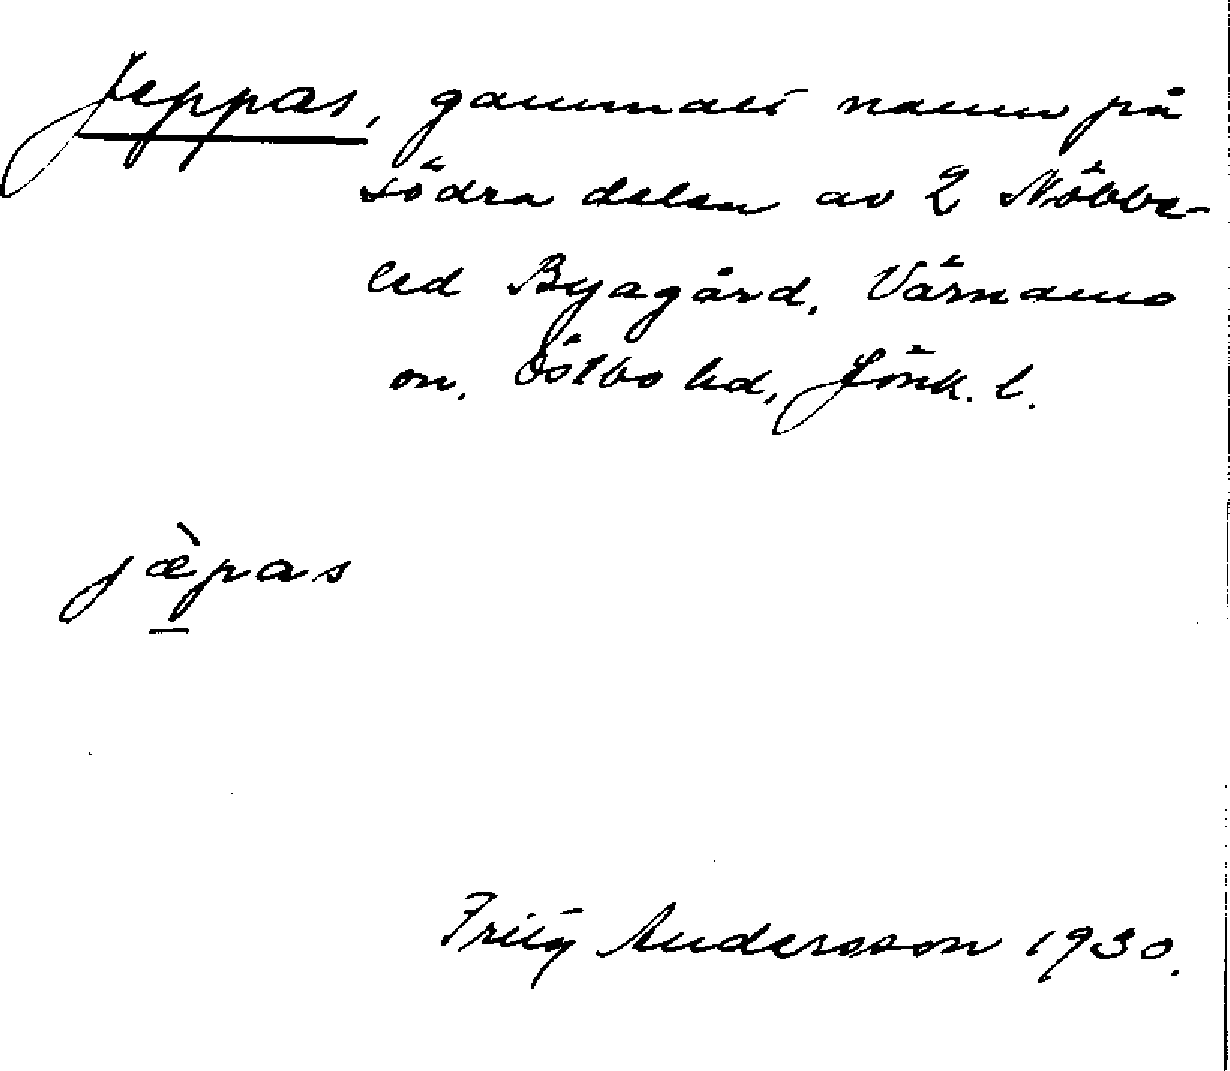 Jeppas, gammalt namn på
södra delen av 2 Nöbbe-
led Byagård, Värnamo
sn. Östbo hd, Jönk. l.
jæ̀pas
Fritz Andersson 1930.